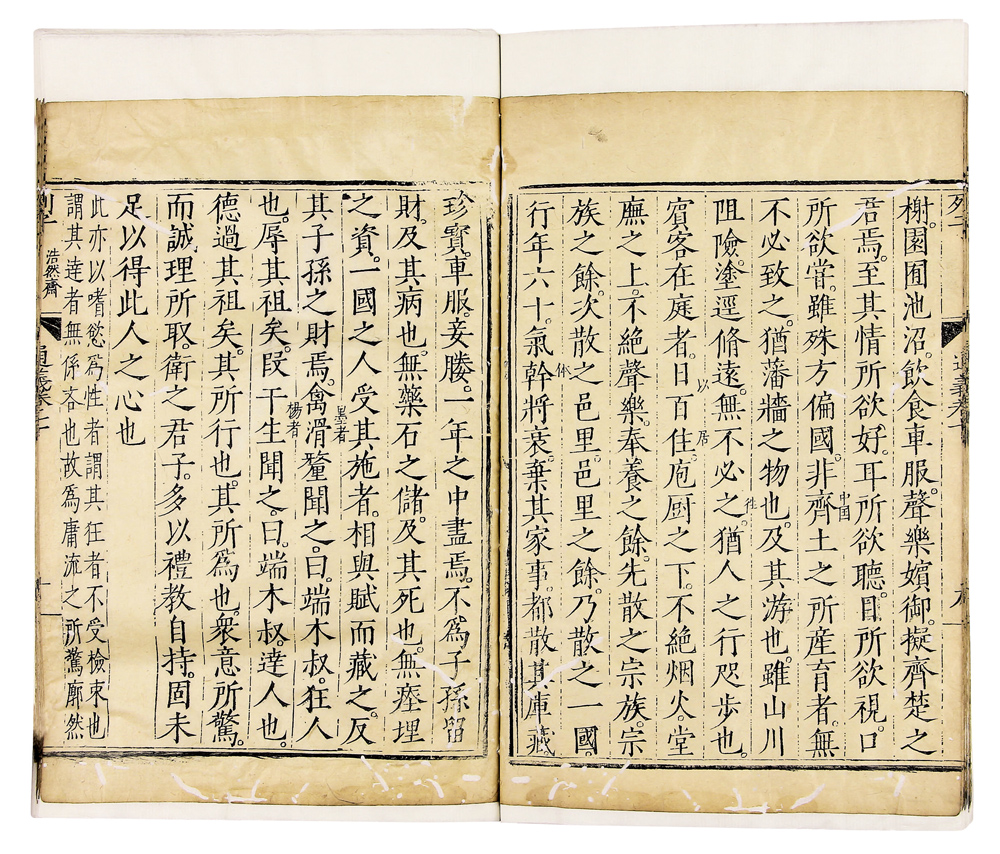 榭。園囿池沼。飲食車服。聲樂嬪御。擬齊楚之
君焉。至其情所欲好。耳所欲聽。目所欲視。口
所欲嘗。雖殊方偏國。非齊土之所産育者。無
中国
不必致之。猶藩牆之物也。及其游也。雖山川
徃
阻險。塗逕脩遠。無不必之。猶人之行咫步也。
以
居
賓客在庭者。日百住。庖厨之下。不絶烟火。堂
廡之上。不絶聲樂。奉養之餘。先散之宗族。宗
族之餘。次散之邑里。邑里之餘。乃散之一國。
体
行年六十。氣幹將衰。棄其家事。都散其庫藏。
珍寶。車服。妾媵。一年之中盡焉。不爲子孫留
財。及其病也。無藥石之儲。及其死也。無瘞埋
之資。一國之人受其施者。相與賦而藏之。反
墨者
其子孫之財焉。禽滑釐聞之。曰。端木叔。狂人
楊者
也。辱其祖矣。段干生聞之。曰。端木叔。達人也。
德過其祖矣。其所行也。其所爲也。衆意所驚。
而誠理所取。衛之君子。多以禮教自持。固未
足以得此人之心也
此亦以嗜慾爲性者謂其狂者不受檢束也
謂其達者無係吝也故爲庸流之所驚廓然
浩然齋
通義卷七